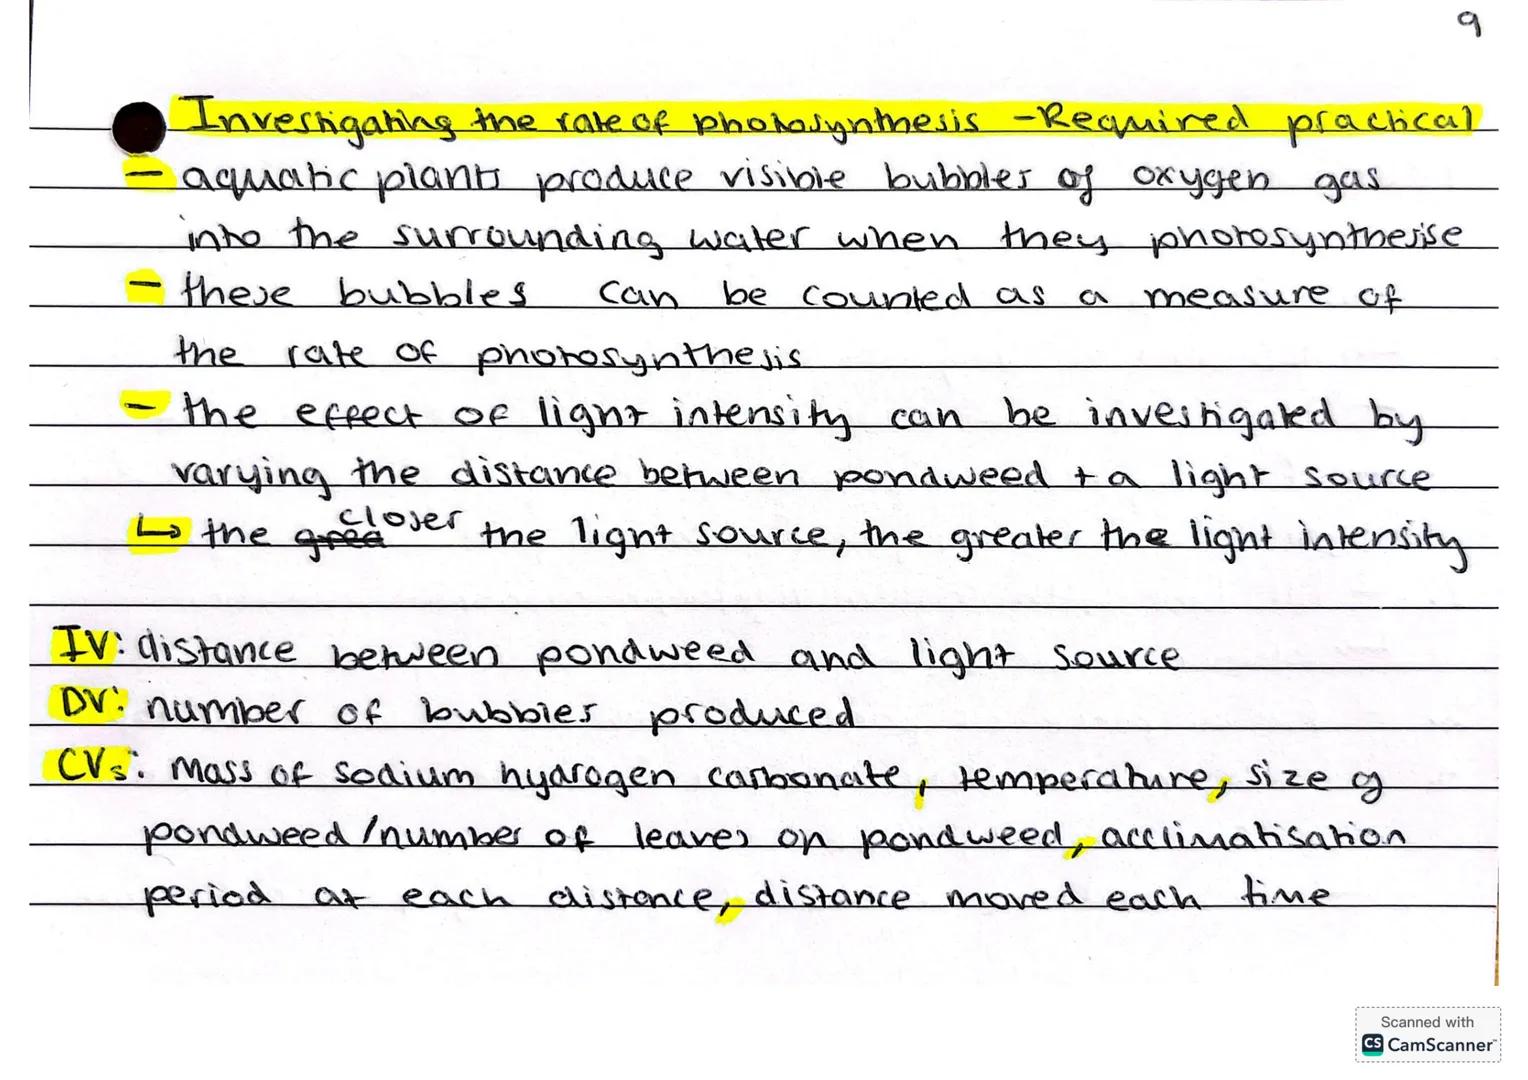 9
Investigating the rate of photosynthesis - Required practical
- aquatic plants produce visible bubbles of oxygen gas
into the surrounding water when they photosynthesise
- these bubbles can be counted as a measure of
the rate of photosynthesis
- the effect of light intensity can be investigated by
varying the distance between pondweed + a light source
↳ the closer the light source, the greater the light intensity
IV: distance between pondweed and light source
DV: number of bubbles produced
CVs: mass of sodium hydrogen carbonate, temperature, size of
pondweed/number of leaves on pondweed, acclimatisation
period at each distance, distance moved each time
Scanned with
CS CamScanner